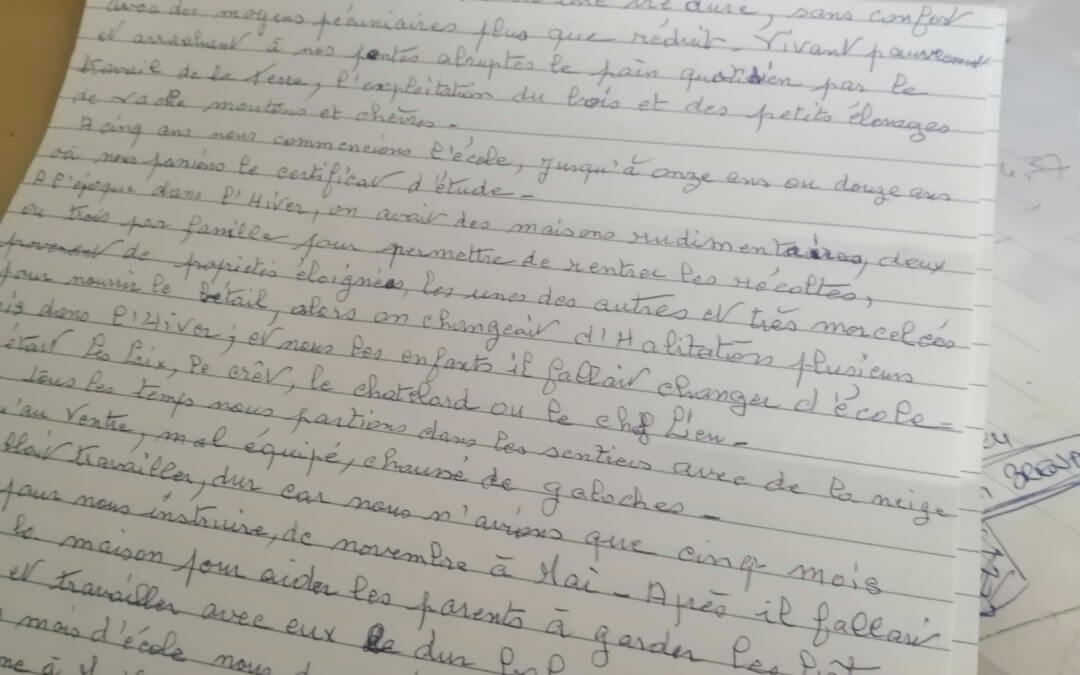 dure, sans confort
avec des moyens pécuniaires plus que réduit. Vivant pauvrement
et arrachent à nos pentes abruptes le pain quotidien par le
travail de la terre, l'exploitation du bois et des petits élevages
de vache moutons et chèvres -
A cinq ans nous commencions l'école, jusqu'à onze ans ou douze ans
où nous passions le certificat d'étude -
A l'époque dans l'Hiver, on avait des maisons rudimentaires, deux
ou trois par famille pour permettre de rentrer les récoltes,
provenant de propriétés éloignées, les unes des autres et très morcelées
pour nourrir le bétail, alors on changeait d'Habitation plusieurs
is dans l'Hiver; et nous les enfants il fallait changer d'école -
était les Paix, Le crêt, le chatelard ou le chef Lieu -
tous les temps nous partions dans les sentiers avec de la neige
u'au ventre, mal équipé, chaussé de galoches -
llait travailler, dur car nous n'avions que cinq mois
pour nous instruire, de novembre à Mai - Après il fallait
la maison pour aider les parents à garder les
et travailler avec eux le dur
mois d'école nous
me à